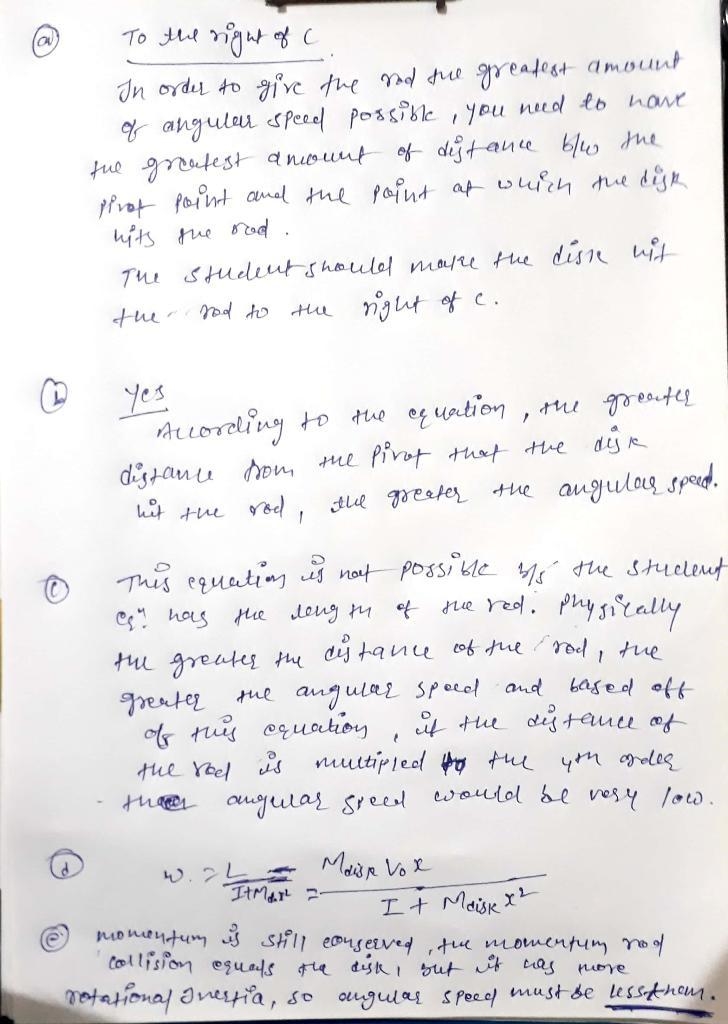 (a) To the right of C
In order to give the rod the greatest amount
of angular speed possible, you need to have
the greatest amount of distance b/w the
pivot point and the point at which the disk
hits the rod.
The student should make the disk hit
the rod to the right of C.
(b) Yes
According to the equation, the greater
distance from the pivot that the disk
hit the rod, the greater the angular speed.
(c) This equation is not possible b/s the student
eqn has the length of the rod. Physically
the greater the distance of the rod, the
greater the angular speed and based off
of this equation, if the distance of
the rod is multipled to the 4th order
angular speed would be very low.
(d) w = L / I+Mdx² = Mdisk Vo x / I + Mdisk x²
(e) momentum is still conserved, the momentum rod
collision equals the disk, but it has more
rotational Inertia, so angular speed must be less than.